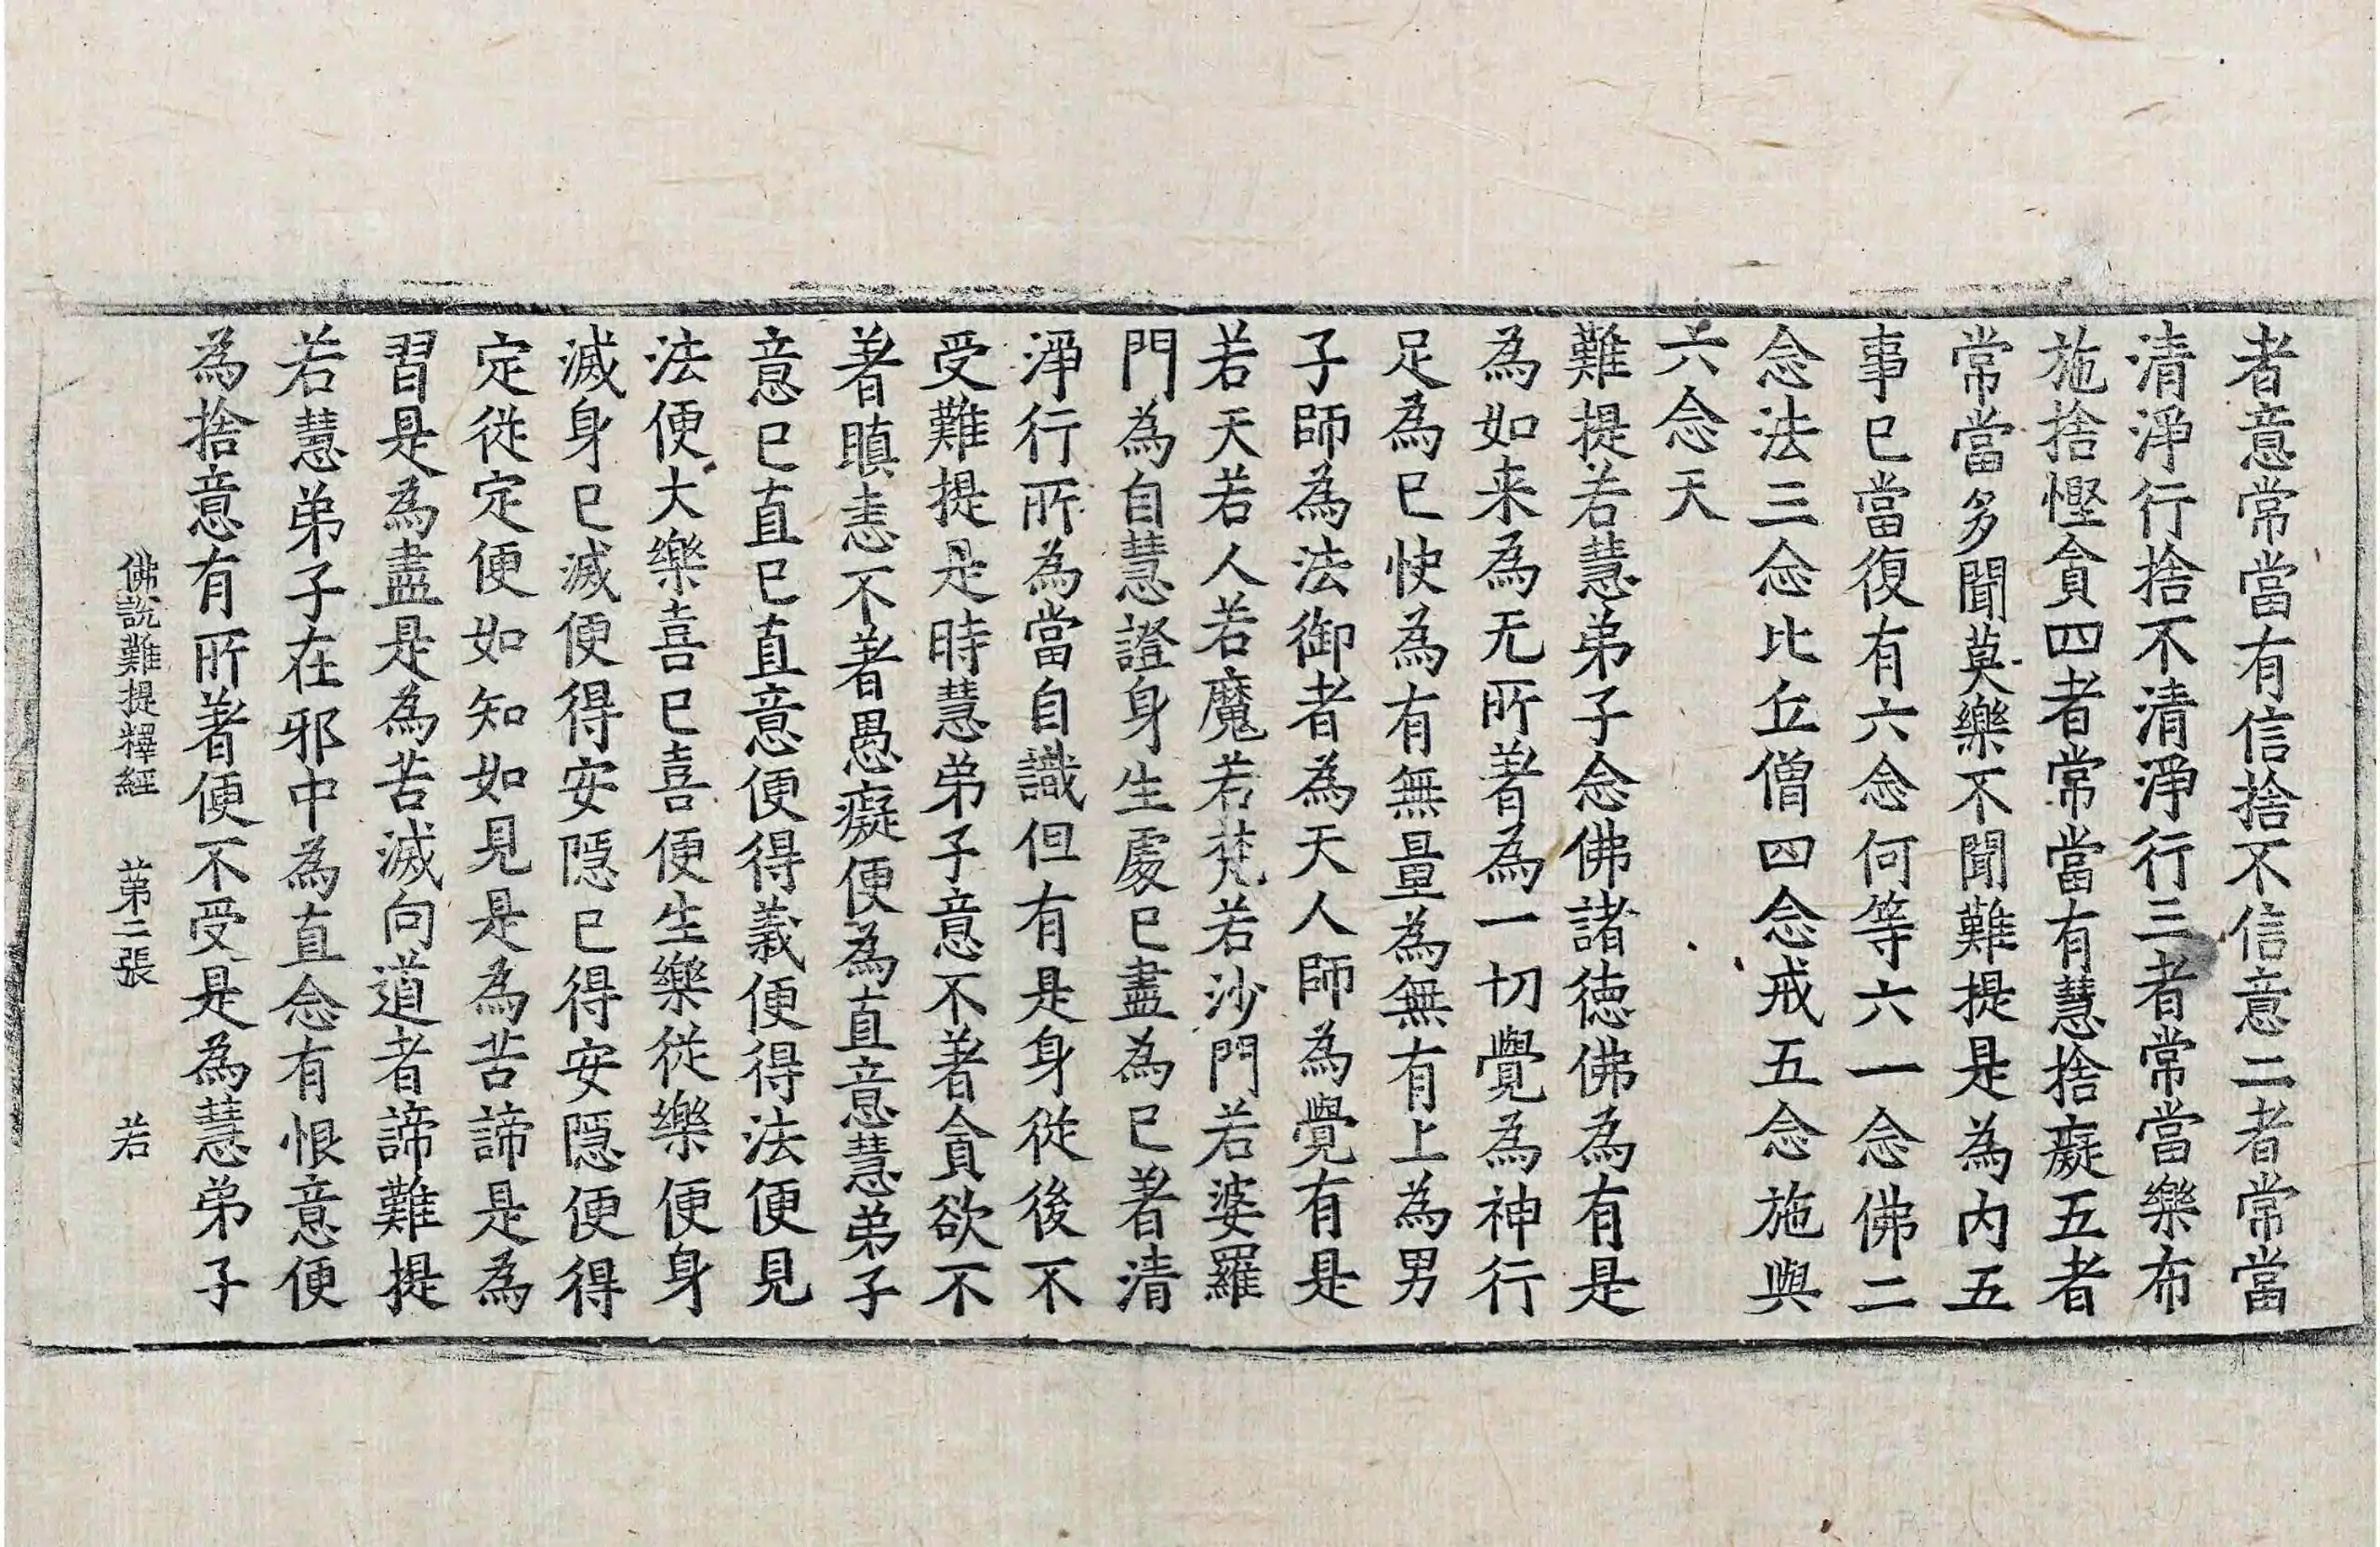 者意常當有信捨不信意二者常當
清淨行捨不清淨行三者常當樂布
施捨慳貪四者常當有慧捨癡五者
常當多聞莫樂不聞難提是為内五
事已當復有六念何等六一念佛二
念法三念比丘僧四念戒五念施與
六念天
難提若慧弟子念佛諸德佛為有是
為如来為无所著為一切覺為神行
足為已快為有無量為無有上為男
子師為法御者為天人師為覺有是
若天若人若魔若梵若沙門若婆羅
門為自慧證身生處已盡為已著清
淨行所為當自識但有是身從後不
受難提是時慧弟子意不著貪欲不
著瞋恚不著愚癡便為直意慧弟子
意已直已直意便得義便得法便見
法便大樂喜已喜便生樂從樂便身
滅身已滅便得安隠已得安隠便得
定從定便如知如見是為苦諦是為
習是為盡是為苦滅向道者諦難提
若慧弟子在邪中為直念有恨意便
為捨意有所著便不受是為慧弟子
佛說難提釋經 苐二張 若